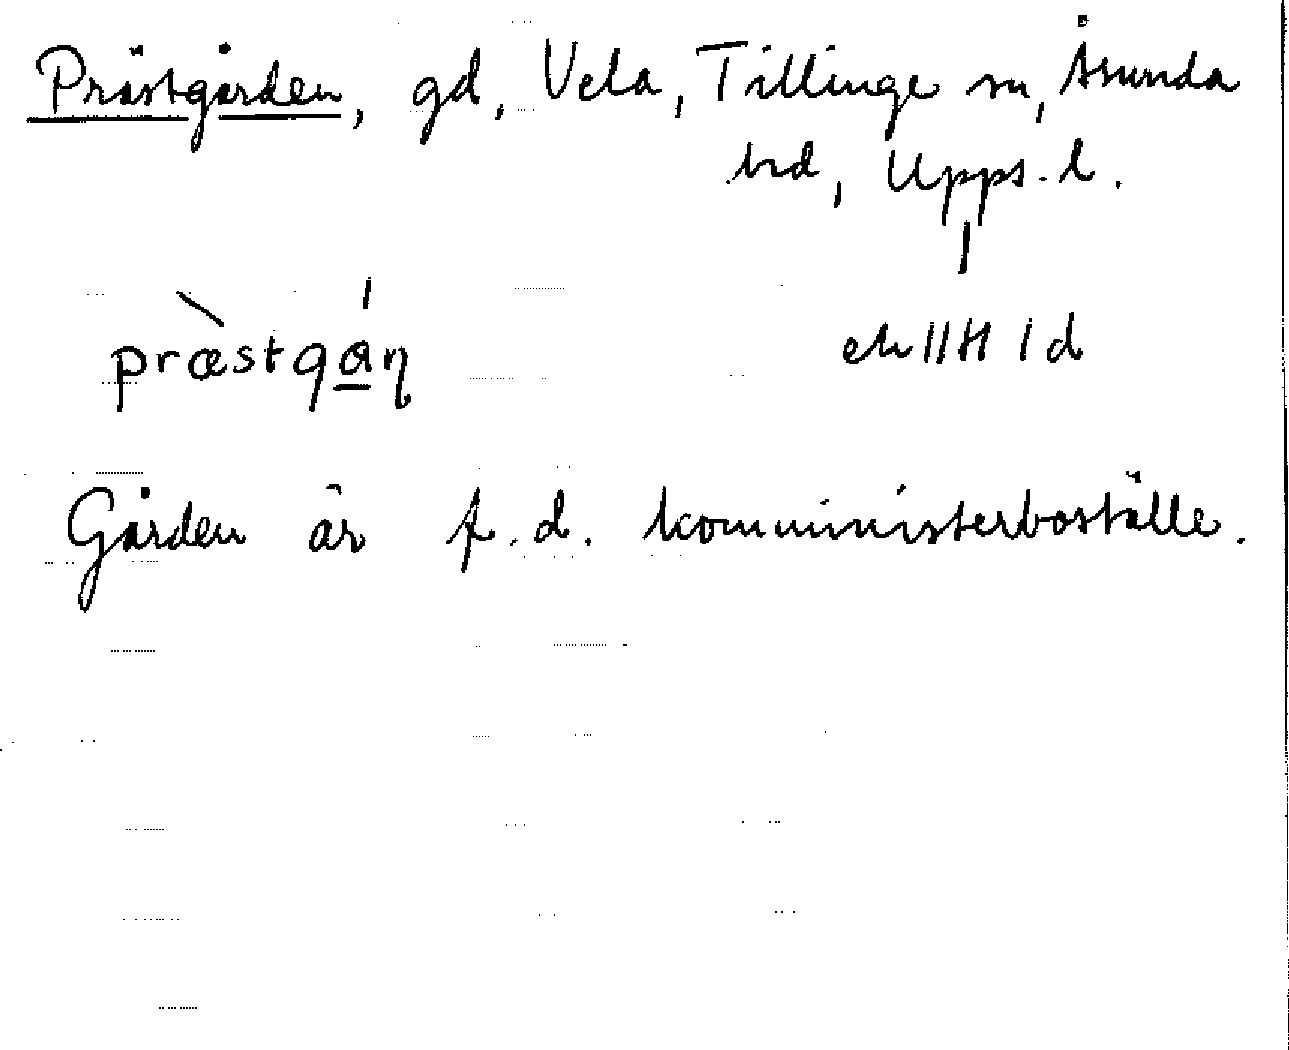 Prästgården, gd, Vela, Tillinge sn, Åsunda
hd, Upps. l.
præ̀stgá̱ṇ
Gården är f.d. komministerboställe.